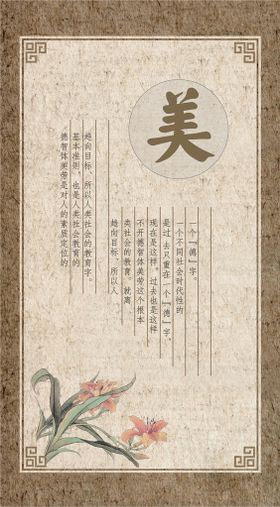 美
一个『德』字。
一个不同社会时代性的
是过去只重在一个『德』字,
现在是这样,过去也是这样
不开德智体美劳这个根本
类社会的教育。就离
趋向目标,所以人
趋向目标,所以人类社会的教育字。
基本准则,也是人类社会教育的
德智体美劳是对人的素质定位的